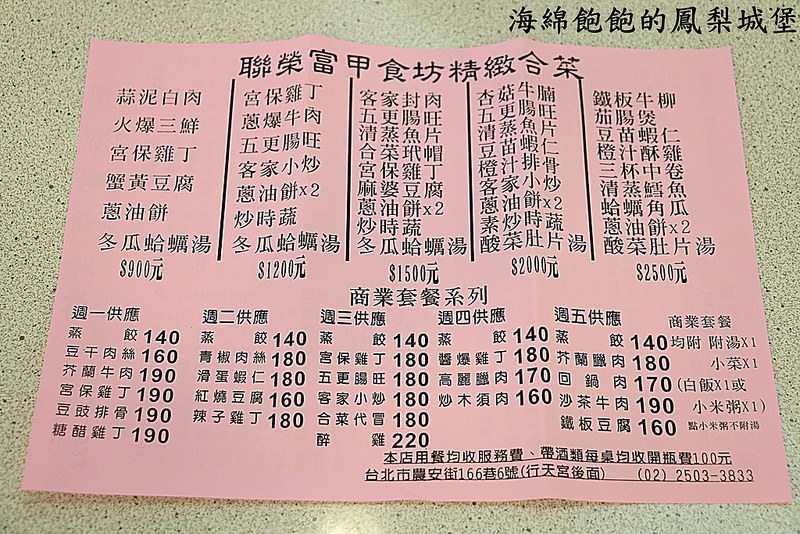 海綿飽飽的鳳梨城堡
聯榮富甲食坊精緻合菜
蒜泥白肉
火爆三鮮
宮保雞丁
蟹黃豆腐
蔥油餅
冬瓜蛤蠣湯
$900元
宮保雞丁
蔥爆牛肉
五更腸旺
客家小炒
蔥油餅x2
炒時蔬
冬瓜蛤蠣湯
$1200元
客家封肉
五更腸旺
清蒸魚片
合菜玳帽
宮保雞丁
麻婆豆腐
蔥油餅x2
炒時蔬
冬瓜蛤蠣湯
$1500元
杏菇牛腩
五更腸旺
清蒸魚片
豆苗蝦仁
橙汁排骨
客家小炒
蔥油餅x2
素炒時蔬
酸菜肚片湯
$2000元
鐵板牛柳
茄腸煲
豆苗蝦仁
橙汁酥雞
三杯中卷
清蒸鱈魚
蛤蠣角瓜
蔥油餅x2
酸菜肚片湯
$2500元
商業套餐系列
週一供應
蒸餃140
豆干肉絲160
芥蘭牛肉190
宮保雞丁190
豆豉排骨190
糖醋雞丁190
週二供應
蒸餃140
青椒肉絲180
滑蛋蝦仁180
紅燒豆腐160
辣子雞丁180
週三供應
蒸餃140
宮保雞丁180
五更腸旺180
客家小炒180
合菜代冒180
醉雞220
週四供應
蒸餃140
醬爆雞丁180
高麗臘肉170
炒木須肉160
週五供應
蒸餃140
芥蘭臘肉180
回鍋肉170
沙茶牛肉190
鐵板豆腐160
商業套餐
均附 附湯X1
小菜X1
(白飯X1或
小米粥X1)
點小米粥不附湯
本店用餐均收服務費、帶酒類每桌均收開瓶費100元
台北市農安街166巷6號(行天宮後面) (02) 2503-3833